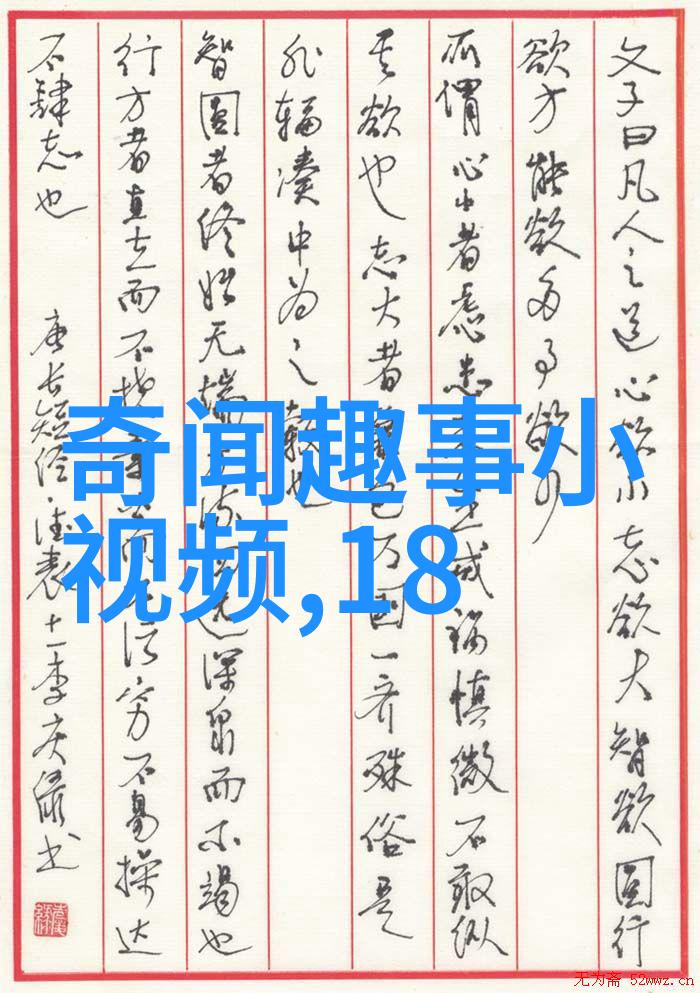 文子曰凡人之道心欲小志欲大智欲圆行
欲方能欲多事欲少
所谓心小者虑患未生戒祸慎微不敢纵
其欲也志大者包万国一齐殊俗是
非辐凑中为之毂也
智圆者终始无端远深泉而不竭也
行方者直立而不而不污穷不易操达
不肆志也
唐长短经·德表十一李庆绿书
奇闻趣事小
视频,18
无为斋 52wwz.cn